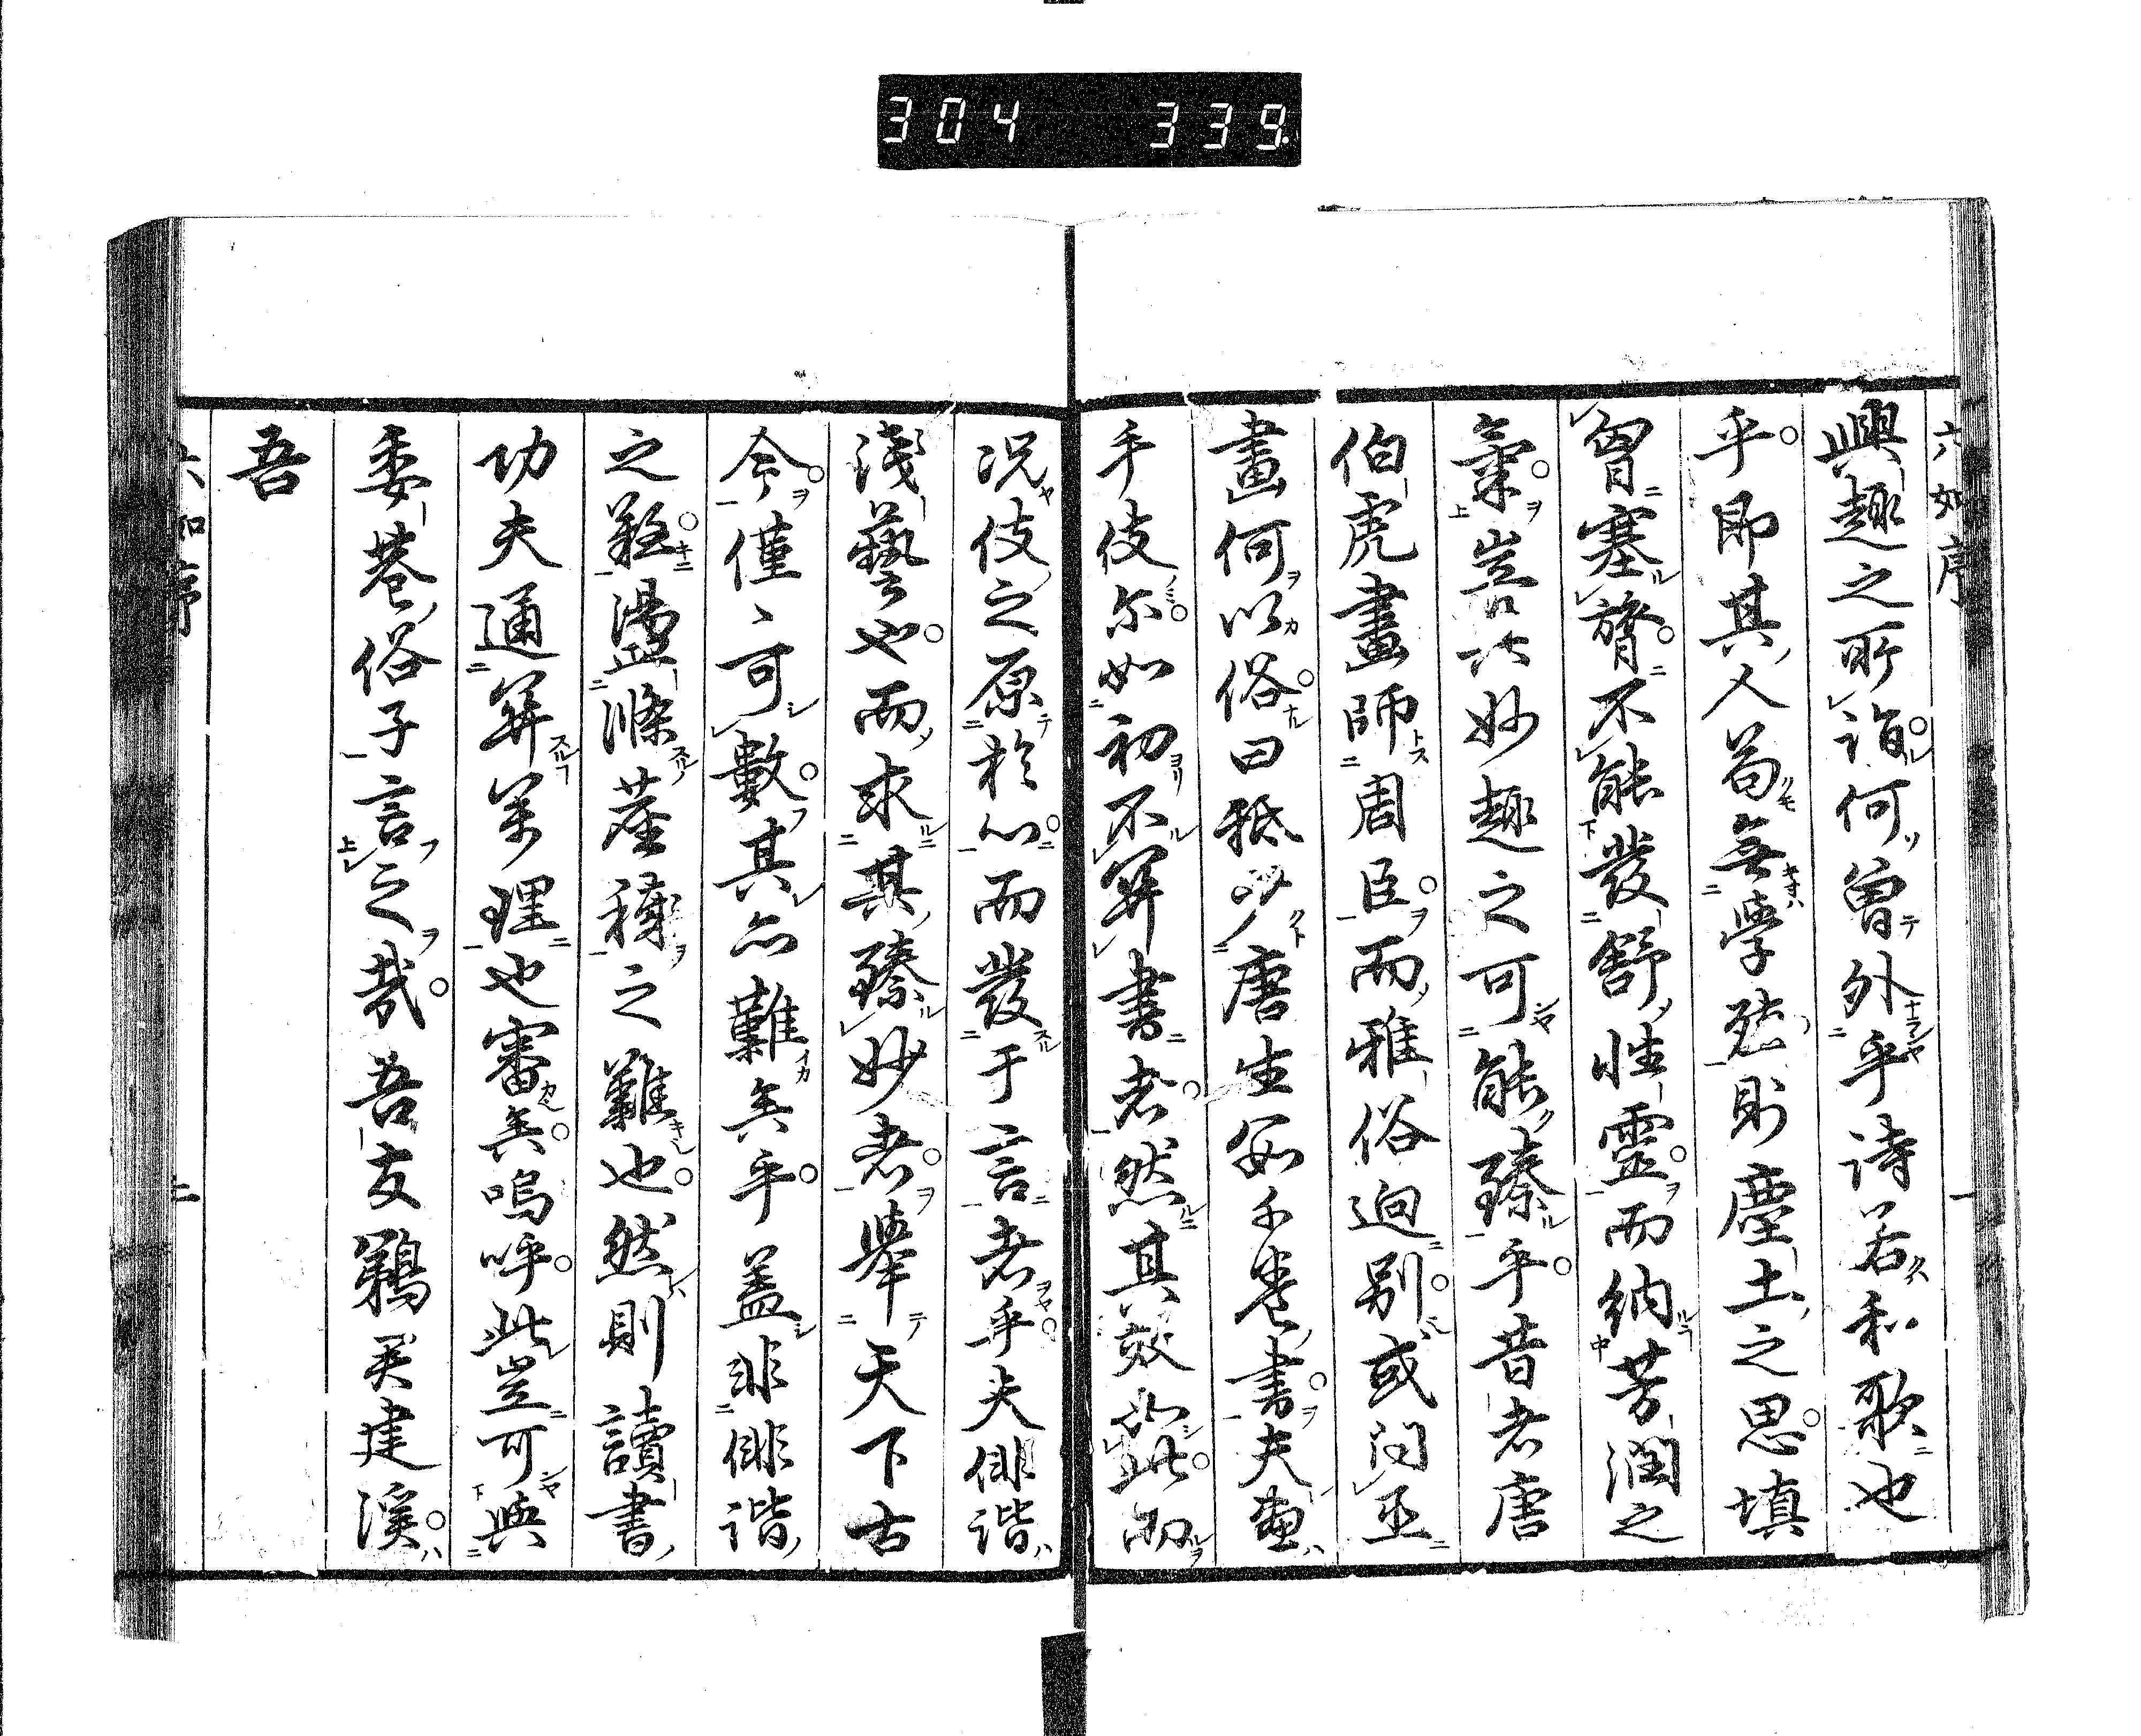 304 339
六如序
一
興趣之所詣何曽外乎詩若和歌也
乎即其人苟無學殖則塵土之思填
胷塞膂不能發舒性靈而納芳潤之
氣豈妙趣之可能臻乎昔者唐
伯虎畫師周臣而雅俗迥別或問臣
畫何以俗曰秪少唐生數千卷書夫畫
手伎尔如初不算書者然其效如此而
况伎之原於心而發于言者乎夫俳諧
淺藝也而求其臻妙者舉天下古
今僅〻可數其亦難矣乎盖非俳諧
之難盪滌塵穢之難也然則讀書
功夫通算萬理也審矣嗚呼此豈可與
委巷俗子言之哉吾友鵜美建溪
吾
六如序
二